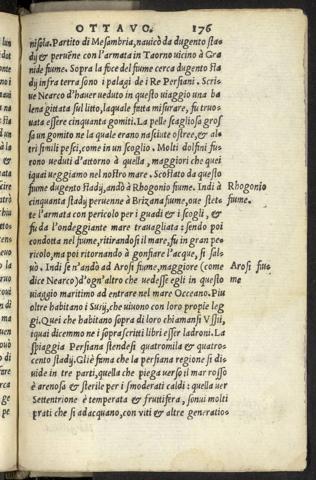 OTTAVO. 176
nisola. Partito di Mesambria, nauicò da dugento sta
dÿ et peruēne con l'armata in Taorno uicino à Gra
nide fiume. Sopra la foce del fiume cerca dugento sta
dÿ infra terra sono i palagi de i Re Persiani. Scri=
ue Nearco d'hauer ueduto in questo uiaggio una ba
lena gittata sul litto, laquale fatta misurare, fu truo=
uata essere cinquanta gomiti. La pelle scagliosa gros
sa un gomito ne la quale erano nasciute ostree, et al=
tri simili pesci, come in un scoglio. Molti dolfini fu=
rono ueduti d'attorno à quella, maggiori che quei
iquai ueggiamo nel nostro mare. Scostato da questo
fiume dugento stadÿ, andò à Rhogonio fiume. Indi à
Rhogonio
cinquanta stadÿ peruenne à Brizana fiume, oue stet=
fiume.
te l'armata con pericolo per i guadi et i scogli, et
fù da l'ondeggiante mare trauagliata: sendo poi
condotta nel fiume, ritirandosi il mare, fù in gran pe=
ricolo, ma poi ritornando à gonfiare l'acque, si sal=
uò. Indi se n'andò ad Arosi fiume, maggiore (come
Arosi fiu=
dice Nearco) d'ogn'altro che uedesse egli in questo
me
uiaggio maritimo ad entrare nel mare Occeano. Piu
oltre habitano i Susÿ, che uiuono con loro propie leg
gi. Quei che habitano sopra di loro chiamansi Vssii,
iquai dicemmo ne i soprascritti libri esser ladroni. La
spiaggia Persiana stendesi quatromila et quatro=
cento stadÿ. Gliè fama che la persiana regione si di=
uide in tre parti, quella che piega uerso il mar rosso
è arenosa et sterile per i smoderati caldi: quella uer
Settentrione è temperata et fruttifera, sonui molti
prati che si adacquano, con viti et altre generatio=